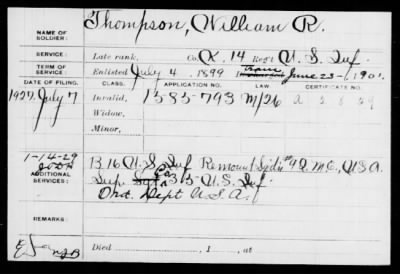 NAME OF SOLDIER: Thompson, William R.
SERVICE: Late rank, Co. K, 14 Reg't U. S. Inf.
TERM OF SERVICE: Enlisted July 4, 1899 June 23, 1901.
DATE OF FILING. CLASS. APPLICATION NO. LAW. CERTIFICATE NO.
1927, July 7 Invalid, 1585-793 M/26
Widow,
Minor,
1-14-29
ADDITIONAL SERVICES: B. 16 U. S. Inf Remount Q. M. C., U.S.A.
U. S. Inf.
Ord. Dept U.S.A.
REMARKS:
Died , 1 , at